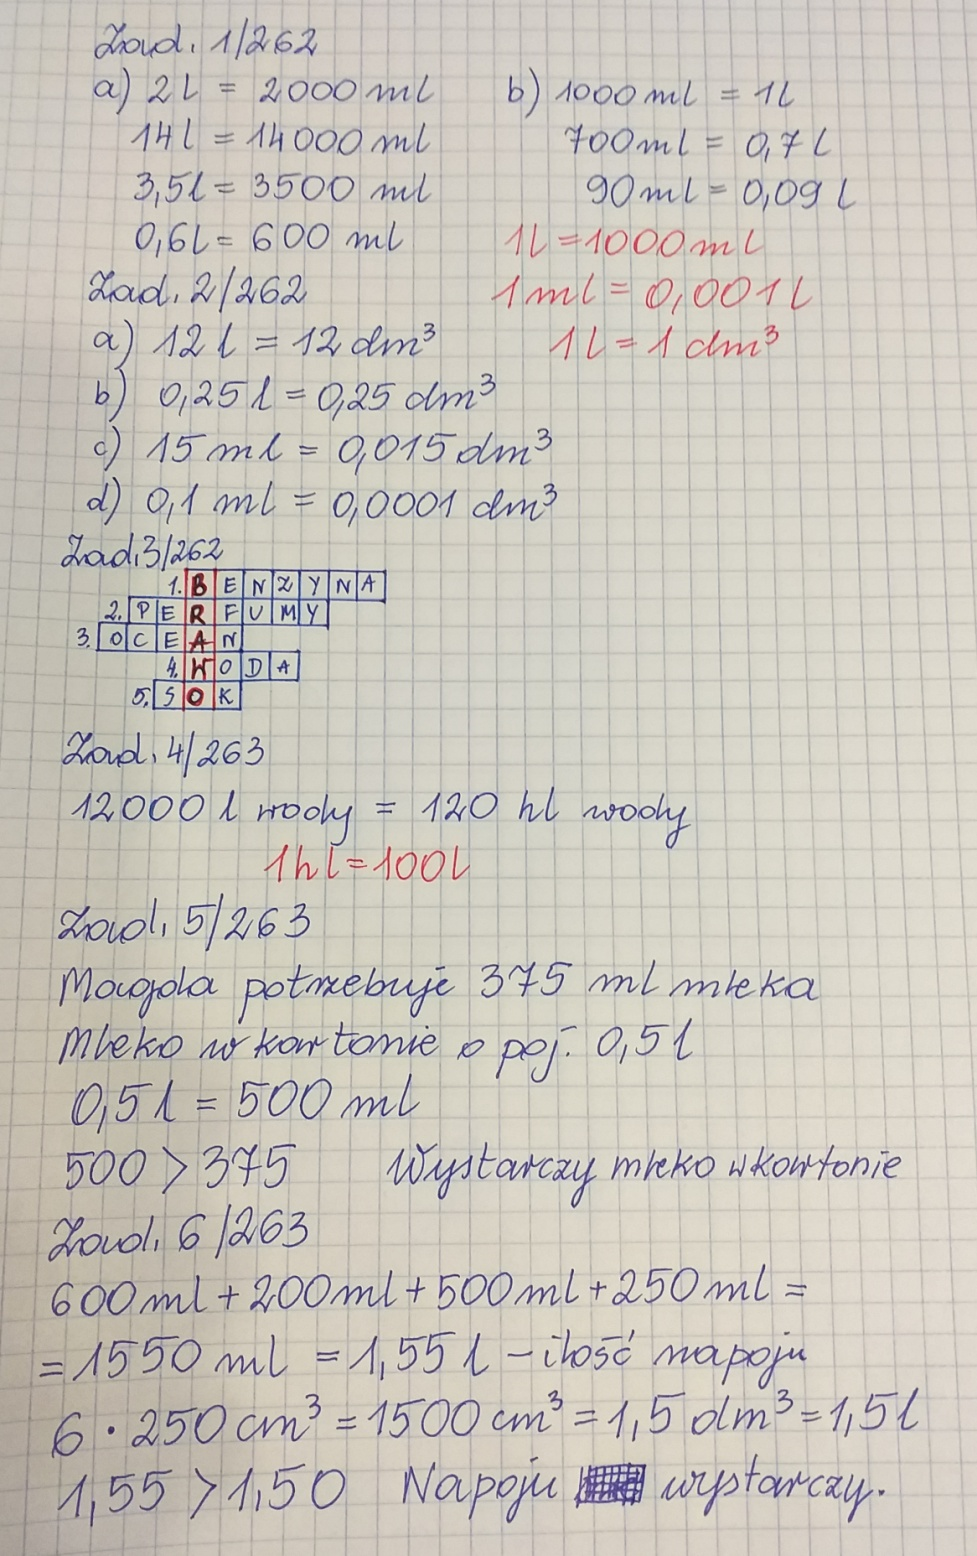 Zad. 1/262
a) 2l = 2000 ml b) 1000 ml = 1l
14l = 14000 ml 700ml = 0,7 l
3,5l = 3500 ml 90ml = 0,09 l
0,6l = 600 ml 1l = 1000ml
Zad. 2/262 1ml = 0,001l
a) 12 l = 12 dm³ 1l = 1 dm³
b) 0,25 l = 0,25 dm³
c) 15 ml = 0,015 dm³
d) 0,1 ml = 0,0001 dm³
Zad.3/262
1. BENZYNA
2. PERFUMY
3. OCEAN
4. WODA
5. SOK
Zad. 4/263
12000 l wody = 120 hl wody
1hl = 100l
Zad. 5/263
Magda potrzebuje 375 ml mleka
Mleko w kartonie o poj. 0,5 l
0,5 l = 500 ml
500 > 375 Wystarczy mleko w kartonie
Zad. 6/263
600 ml + 200ml + 500ml + 250 ml =
= 1550 ml = 1,55 l – ilość napoju
6 · 250 cm³ = 1500 cm³ = 1,5 dm³ = 1,5 l
1,55 > 1,50 Napoju wystarczy.